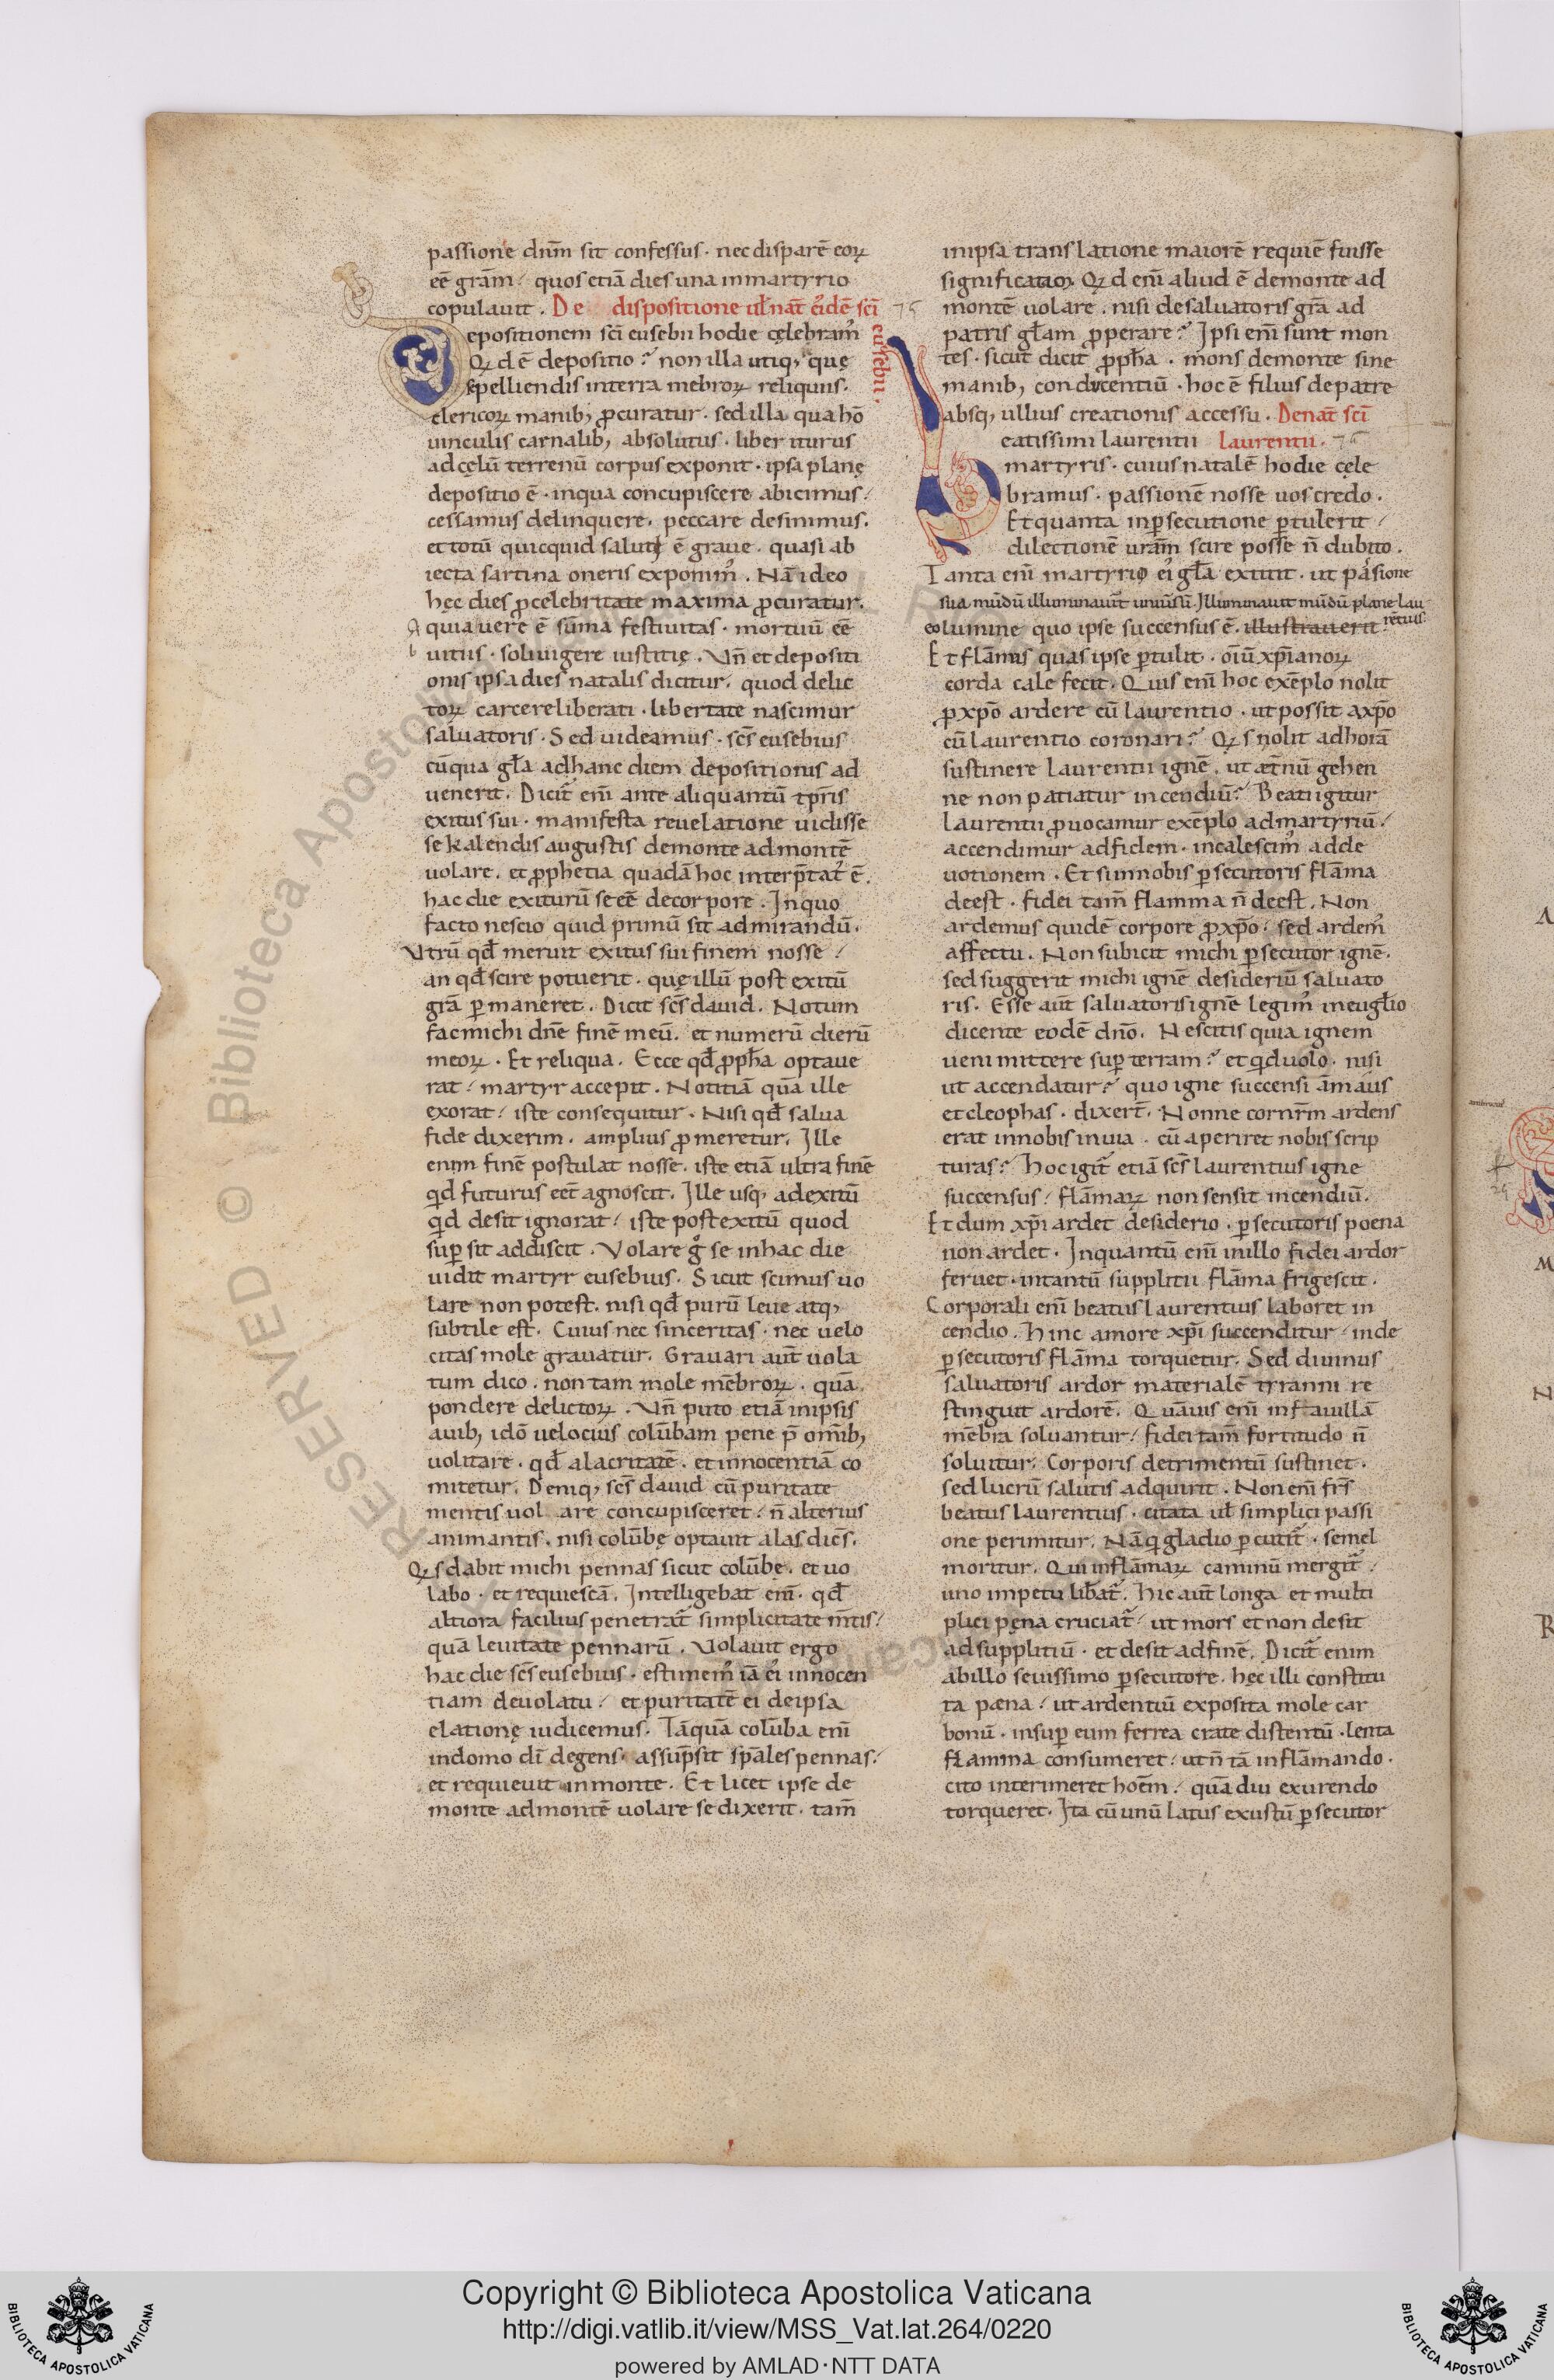 passione dnm̄ sit confessus · nec disparē eoꝝ
eē gram̄ / quos etiā dies una inmartyrio
copulauit . De dispositione ul̄ nat̄ ei᷒dē sc̄i
eusebii .
Depositionem sc̄i eusebii hodie cęlebram᷒
Qꝫ d ē depositio ? non illa utiqꝫ quę
sepelliendis interra mēbroꝝ reliquiis .
clericoꝝ manibꝫ ꝓcuratur . sed illa qua hō
uinculis carnalibꝫ absolutus . liber iturus
ad cęlū terrenū corpus exponit . ipsa planę
depositio ē . inqua concupiscere abicimus /
cessamus delinquere . peccare desinimus .
et totū quicquid saluti ē graue . quasi ab
iecta sartina oneris exponim᷒ . Nā ideo
hęc dies ꝓcelebritate maxima ꝓcuratur .
quia uere ē sūma festiuitas . mortuū eē
uitiis . soli uigere iustitię . Vn̄ et depositi
onis ipsa dies natalis dicitur . quod delic
toꝝ carcere liberati . libertate nascimur
saluatoris . Sed uideamus . scs̄ eusebius
cūqua gl̄a adhanc diem depositionis ad
uenerit . Dicit̄ eni̅ ante aliquantū tp̄ris
exitus sui . manifesta reuelatione uidisse
se kalendis augustis demonte admontē
uolare . et ꝓphetia quadā hoc interp̄tat᷒ ē .
hac die exiturū se eē decorpore . Inquo
facto nescio quid primū sit admirandū .
Vtrū qđ meruit exitus sui finem nosse /
an qđ scire potuerit . quę illū post exitū
grā ꝑmaneret . Dicit scs̄ dauid . Notum
fac michi dnē finē meū . et numerū dierū
meoꝝ . Et reliqua . Ecce qđ ꝓph̄a optaue
rat / martyr accepit . Notitiā quā ille
exorat / iste consequitur . Nisi qđ salua
fide dixerim . amplius ꝓmeretur . Ille
enim finē postulat nosse . iste etiā ultra finē
qd futurus eēt agnoscit . Ille usqꝫ ad exitū
qd desit ignorat / iste post exitū quod
suꝑsit addiscit . Volare gͦ se inhac die
uidit martyr eusebius . Sicut scimus uo
lare non potest . nisi qđ purū leue atqꝫ
subtile est . Cuius nec sinceritas . nec uelo
citas mole grauatur . Grauari aut̄ uola
tum dico . non tam mole mēbroꝝ . quā
pondere delictoꝝ . Vn̄ puto etiā inipsis
auibꝫ idō uelocius colūbam pene p̄ omi̅bꝫ
uolitare . qđ alacritatē . et innocentiā co
mitetur . Deniqꝫ scs̄ dauid cū puritate
mentis uol are concupisceret / n̄ alterius
animantis . nisi colūbę optauit alas dicēs .
Qꝫ s dabit michi pennas sicut colūbę . et uo
labo . et requiescā . Intelligebat eni̅ . qđ
altiora facilius penetrat̄ simplicitate m̄tis /
quā leuitate pennarū . Volauit ergo
hac die scs̄ eusebius . estimem᷒ iā ei᷒ innocen
tiam deuolatu / et puritatē ei deipsa
elationę iudicemus . Tāquā colūba eni̅
indomo dī degens . assūpsit sp̄ales pennas /
et requieuit inmonte . Et licet ipse de
monte admontē uolare se dixerit . tam̄
inipsa translatione maiorē requiē fuisse
significatioꝝ Qꝫ d eni̅ aliud ē demonte ad
montē uolare . nisi desaluatoris grā ad
patris gl̄am ꝓperare ? Ipsi eni̅ sunt mon
tes . sicut dicit ꝓph̄a . mons demonte sine
manibꝫ conducentiū . hoc ē filius depatre
absqꝫ ullius creationis accessu . De nat̄ sc̄i
Laurentii . 76
Beatissimi laurentii
martyris . cuius natalē hodie cęle
bramus . passionē nosse uos credo .
Et quanta inꝑsecutione ꝑtulerit /
dilectionē uram̄ scire posse n̄ dubito .
Tanta eni̅ martyrio ei᷒ gl̄a extitit . ut passione
sua mūdū illuminauit̄ uniūsū . Illuminauit mūdū plane lau
rētius
eo lumine quo ipse succensus ē . illustrauerit
Et flāmis quas ipse ꝑtulit . oīū xp̄ianoꝝ
corda calefecit . Quis eni̅ hoc exēplo nolit
ꝓ xp̄o ardere cū laurentio . ut possit a xp̄o
cū laurentio coronari ? Qꝫ s nolit ad horā
sustinere laurentii ignē . ut æt̄nū gehen
ne non patiatur incendiū ? Beati igitur
laurentii ꝓuocamur exēplo admartyriū /
accendimur adfidem . incalescim᷒ adde
uotionem . Et si innobis ꝑsecutoris flāma
deest . fidei tam̄ flamma n̄ deest . Non
ardemus quidē corpore ꝓ xp̄o / sed ardem᷒
affectu . Non subicit michi ꝑsecutor ignē .
sed suggerit michi ignē desideriū saluato
ris . Esse aut̄ saluatoris ignē legim᷒ ineuḡlio
dicente eodē dn̄o . Nescitis quia ignem
ueni mittere suꝑ terram ? et qd uolo . nisi
ut accendatur ? quo igne succensi amaus
et cleophas . dixert̄ . Nonne cor nr̄m ardens
erat innobis inuia . cū aperiret nobis scrip
turas ? Hoc igit̄ etiā scs̄ laurentius igne
succensus / flāmaꝝ non sensit incendiū .
Et dum xp̄i ardet desiderio . ꝑsecutoris poena
non ardet . Inquantū eni̅ inillo fidei ardor
feruet . intantū supplitii flāma frigescit .
Corporali eni̅ beatus laurentius laboret in
cendio . Hinc amore xp̄i succenditur / inde
ꝑsecutoris flāma torquetur . Sed diuinus
saluatoris ardor materialē tyranni re
stinguit ardorē . Quāuis eni̅ infauillā
mēbra soluantur / fidei tam̄ fortitudo n̄
soluitur . Corporis detrimentū sustinet .
sed lucrū salutis adquirit . Non eni̅ frs̄
beatus laurentius . citata ul̄ simplici passi
one perimitur . Nā q gladio ꝑcutit̄ . semel
moritur . Qui inflāmaꝝ caminū mergit̄ /
uno impetu lib̄at̄ . Hic aut̄ longa et multi
plici pęna cruciat̄ / ut mors et non desit
ad supplitiū . et desit ad finē . Dicit̄ enim
ab illo seuissimo ꝑsecutore . hęc illi constitu
ta pæna / ut ardentiū exposita mole car
bonū . insuꝑ eum ferrea crate distentū . lenta
flamma consumeret / ut n̄ tā inflāmando .
cito interimeret hoēm / quā diu exurendo
torqueret . Ita cū unū latus exustū ꝑsecutor
Copyright © Biblioteca Apostolica Vaticana
http://digi.vatlib.it/view/MSS_Vat.lat.264/0220
powered by AMLAD·NTT DATA
BIBLIOTECA APOSTOLICA VATICANA
BIBLIOTECA APOSTOLICA VATICANA